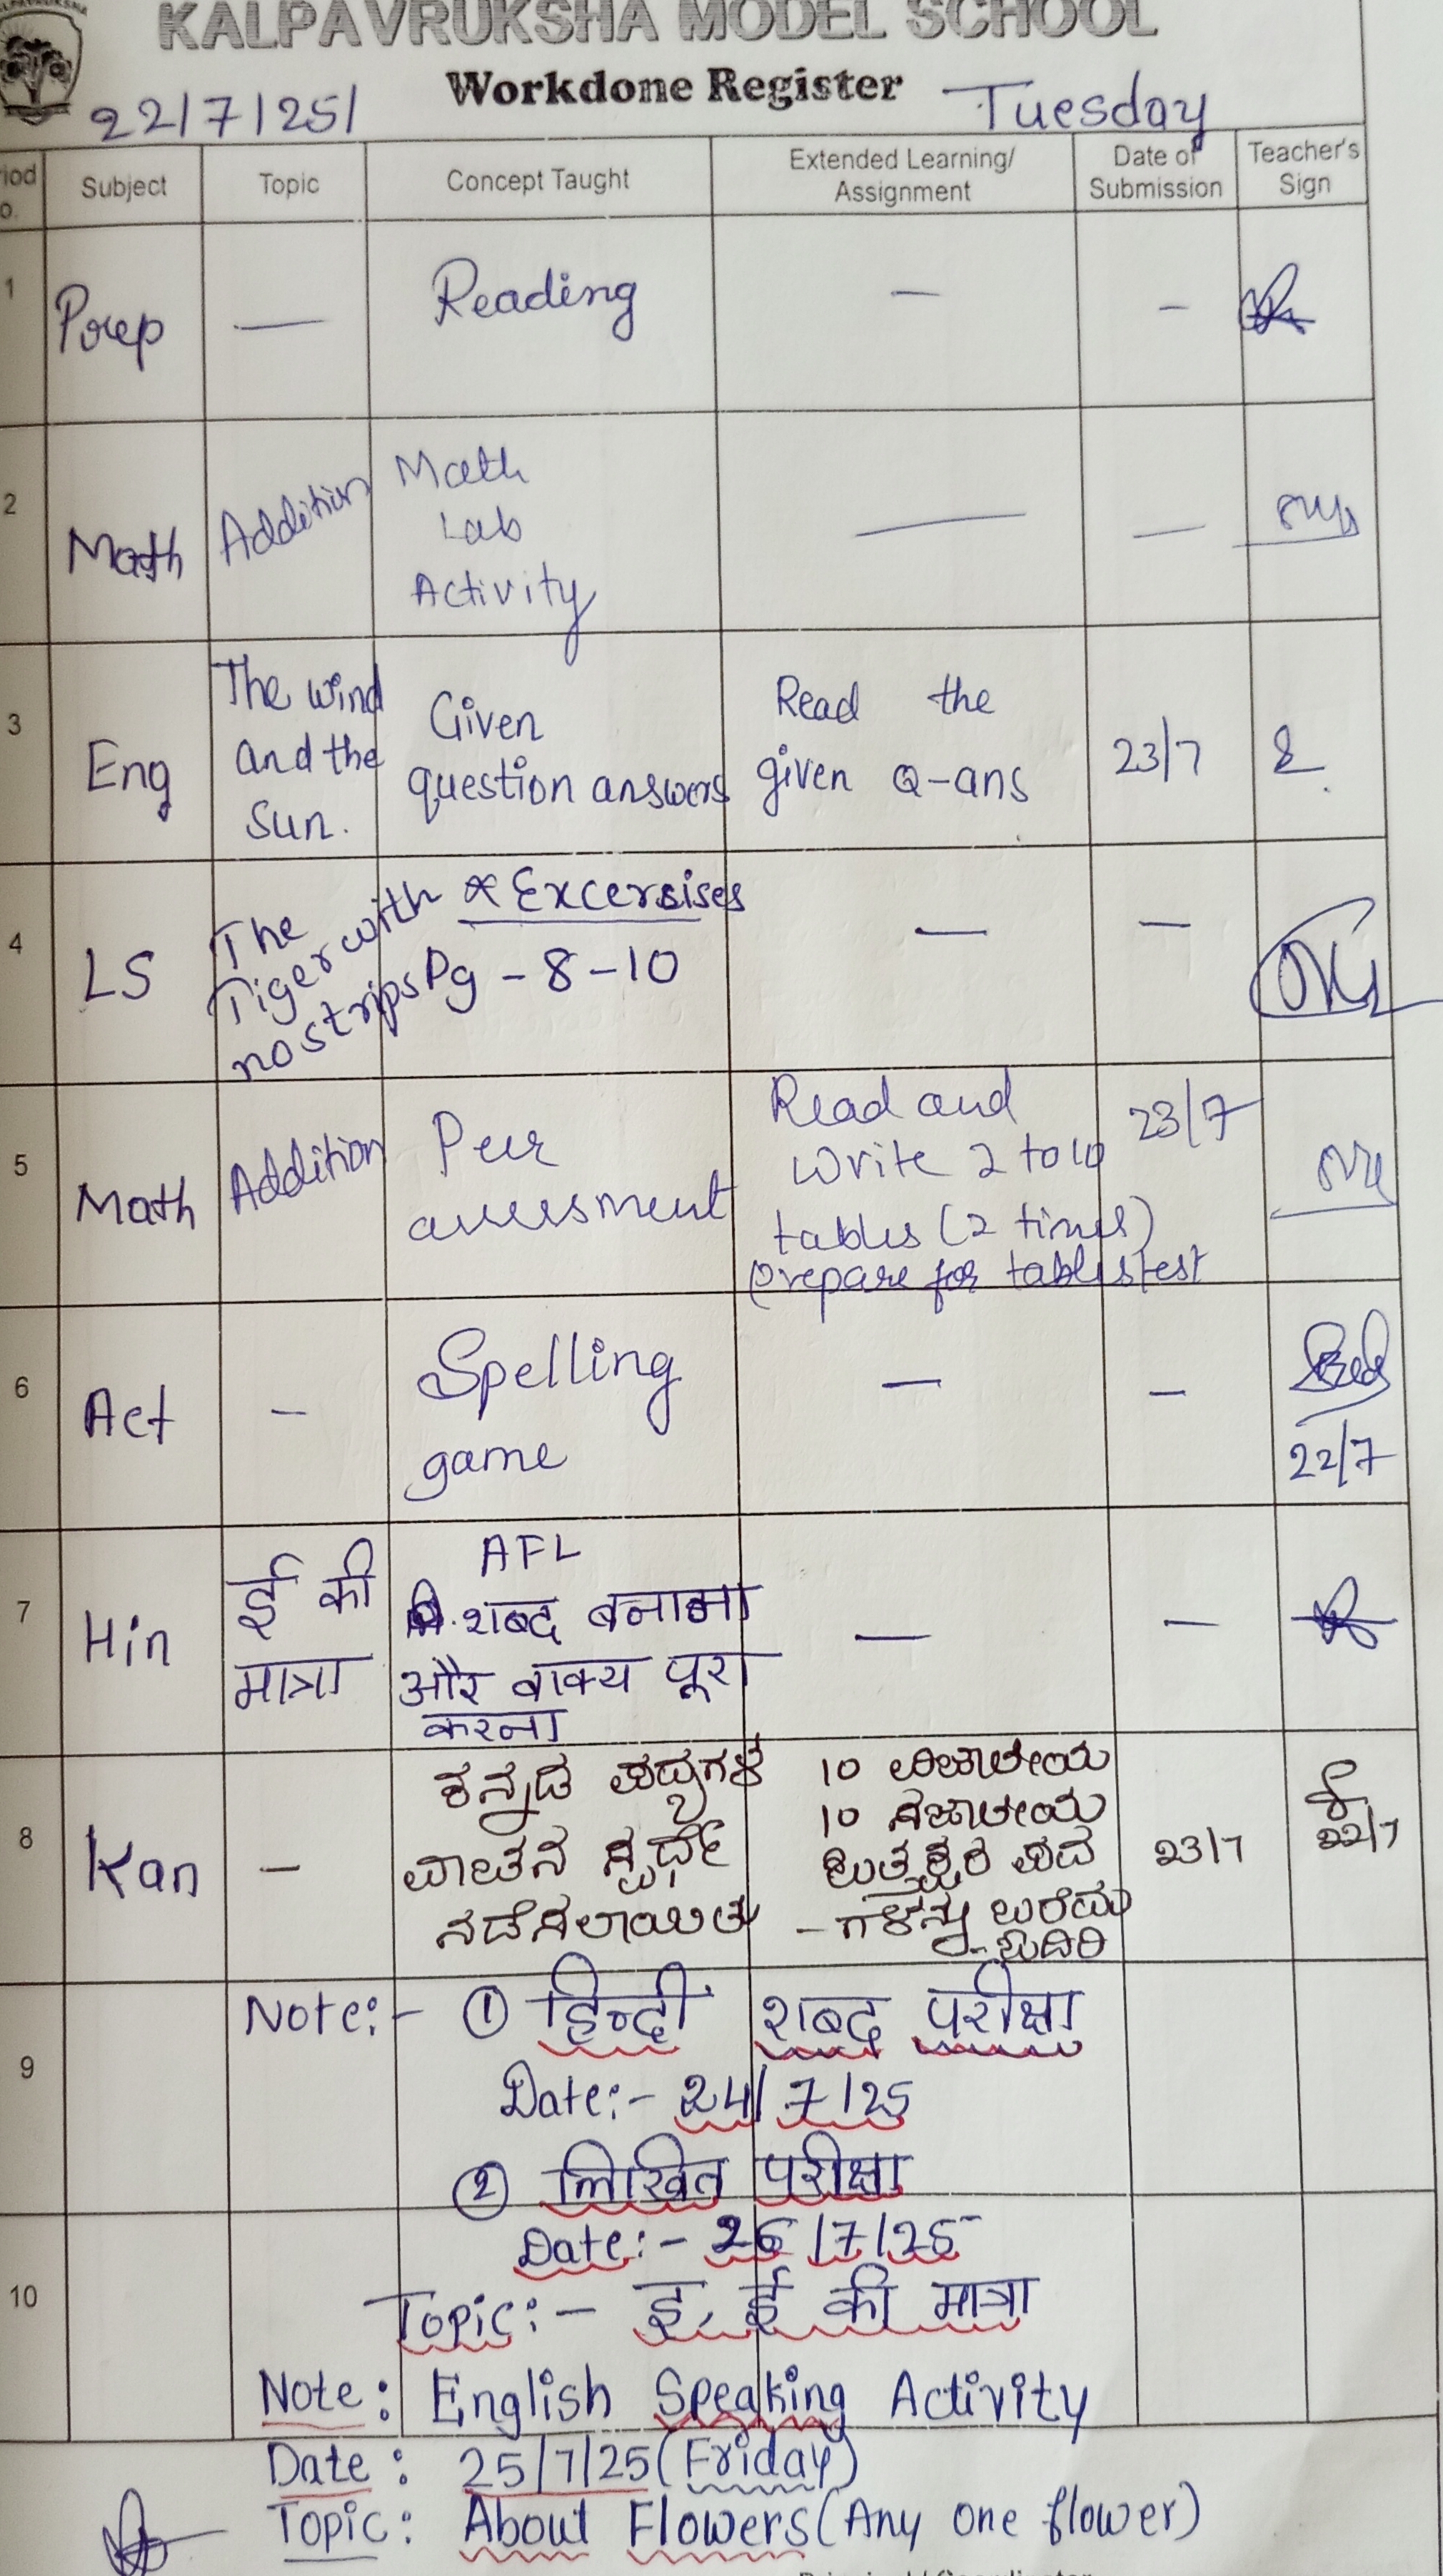 KALPAVRUKSHA MODEL SCHOOL
Workdone Register
22/7/25/ Tuesday
Subject Topic Concept Taught Extended Learning/ Assignment Date of Submission Teacher's Sign
1 Prep — Reading — —
2 Math Addition Math Lab Activity — —
3 Eng The wind and the Sun. Given question answers Read the given Q-ans 23/7
4 LS The Tiger with no strips * Excersises Pg - 8 - 10 — —
5 Math Addition Peer assessment Read and write 2 to 10 tables (2 times) prepare for tables test 23/7
6 Act - Spelling game — — 22/7
7 Hin ई की मात्रा AFL शब्द बनाना और वाक्य पूरा करना — —
8 Kan - ಕನ್ನಡ ಪದ್ಯಗಳ ವಾಚನ ಸ್ಪರ್ಧೆ ನಡೆಸಲಾಯಿತು 10 ವಿಜಾತೀಯ 10 ಸಜಾತೀಯ ಒತ್ತಕ್ಷರ ಪದ - ಗಳನ್ನು ಬರೆದು - ಓದಿರಿ 23/7 22/7
9
Note:- ① हिन्दी शब्द परीक्षा
Date:- 24/7/25
② लिखित परीक्षा
10
Date:- 26/7/25
Topic:- इ, ई की मात्रा
Note: English Speaking Activity
Date: 25/7/25 (Friday)
Topic: About Flowers (Any one flower)